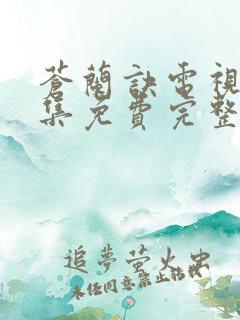 蒼蘭訣電視
集免費完整
追夢螢火虫
未經同意禁止轉載